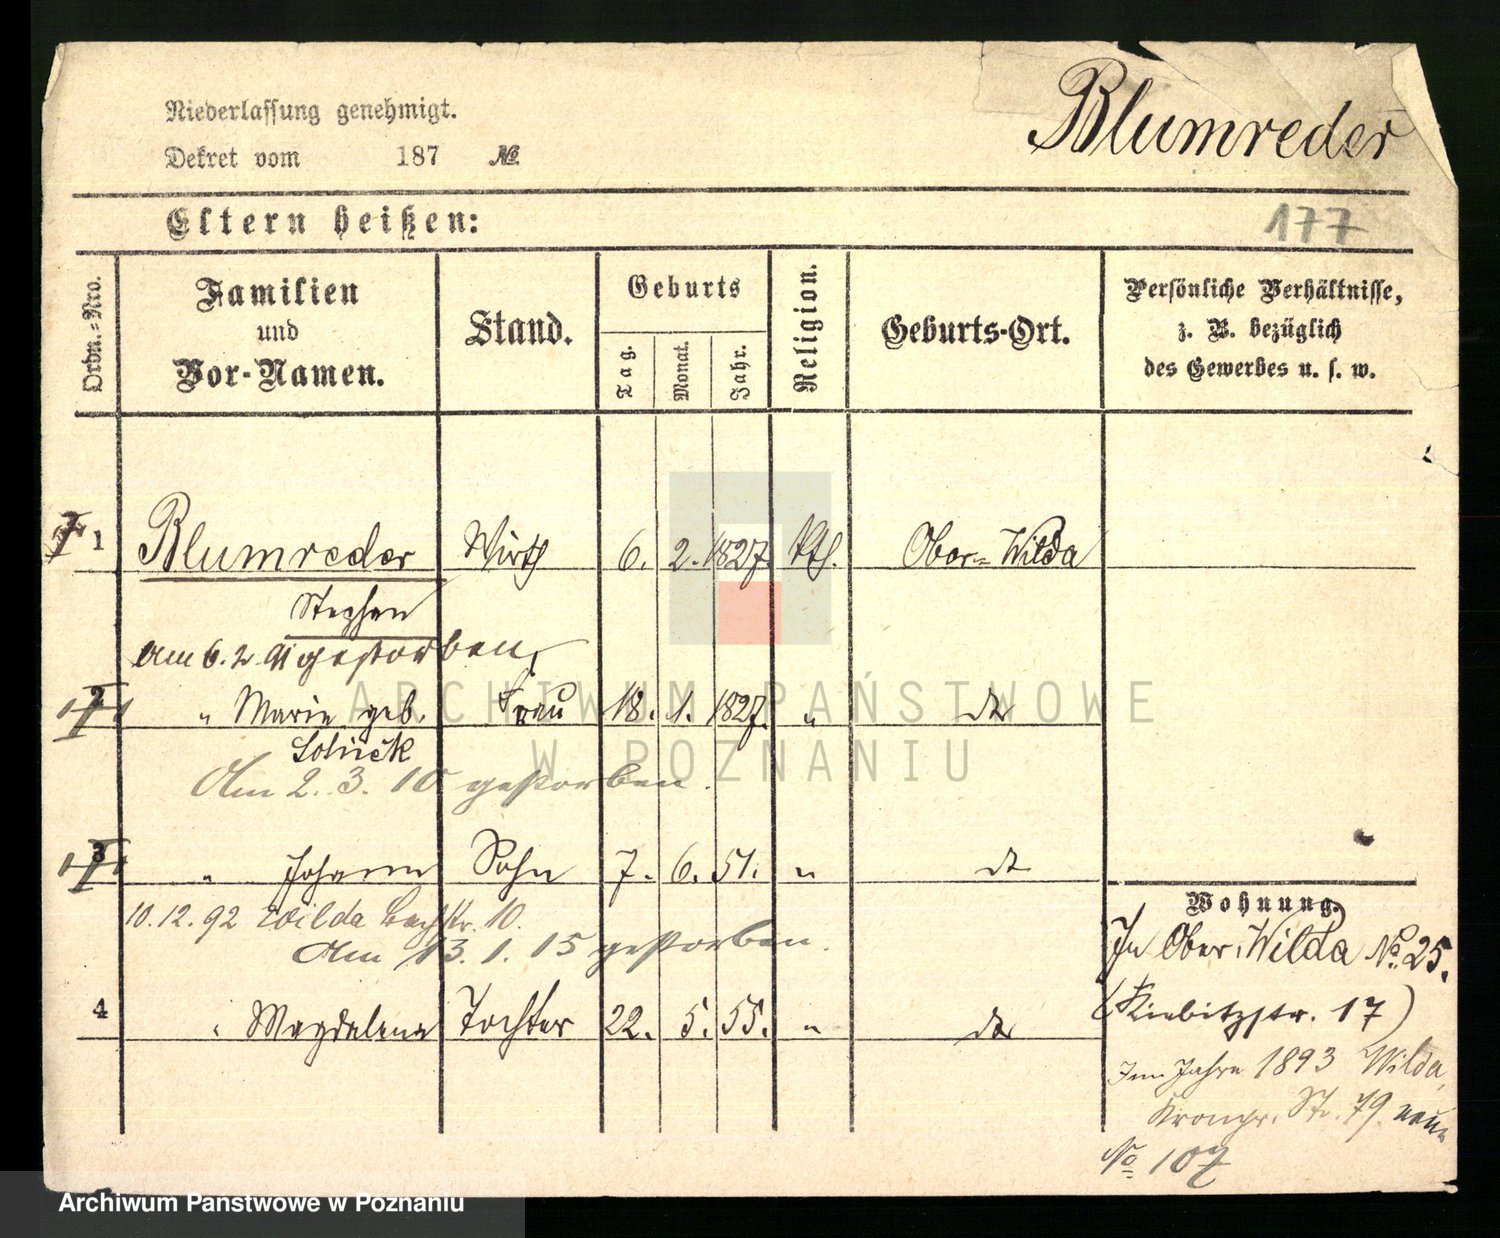 Niederlassung genehmigt.
Dekret vom 187 №
Blumreder
Eltern heißen:
177
Ordn.-Nro.
Familien
und
Vor-Namen.
Stand.
Geburts
Tag.
Monat.
Jahr.
Religion.
Geburts-Ort.
Persönliche Verhältnisse,
z. B. bezüglich
des Gewerbes u. s. w.
1 Blumreder Wirth 6. 2. 1827. Kth. Ober-Wilda
Stephan
am 6.2.91 gestorben,
2 " Maria geb. Frau 18. 1. 1827. " dto
Am 2. 3. 10 gestorben.
3 " Johann Sohn 7. 6. 51. " dt
10.12.92 Wilda Bachstr. 10.
Am 13. 1. 15 gestorben.
4 " Magdalena Tochter 22. 5. 55. " dto
Wohnung.
In Ober-Wilda No. 25.
(Kiebitzstr. 17)
Im Jahre 1893 Wilda,
Kronpr. Str. 79. neue
No 107
ARCHIWUM PAŃSTWOWE
W POZNANIU
Archiwum Państwowe w Poznaniu